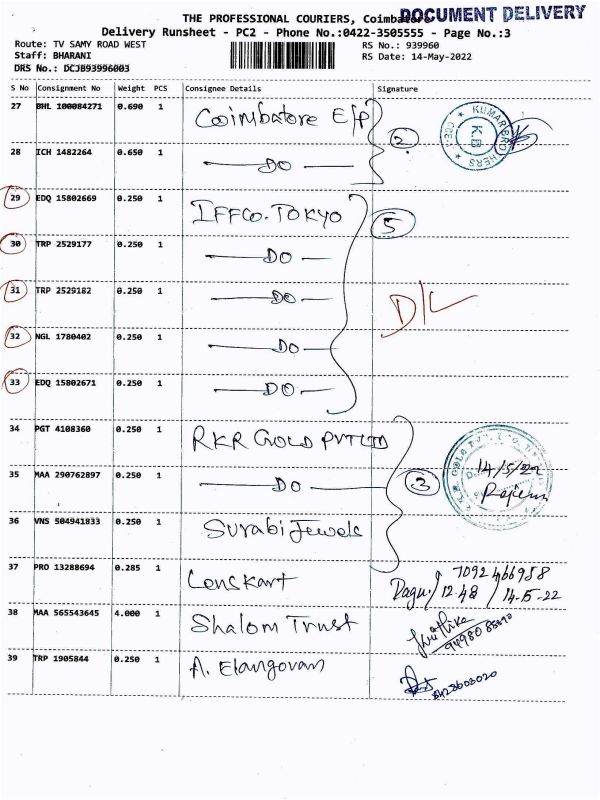 THE PROFESSIONAL COURIERS, Coimbatore
DOCUMENT DELIVERY
Delivery Runsheet - PC2 - Phone No.:0422-3505555 - Page No.:3
Route: TV SAMY ROAD WEST RS No.: 939960
Staff: BHARANI RS Date: 14-May-2022
DRS No.: DCJB93996003
S No Consignment No Weight PCS Consignee Details Signature
27 BHL 100084271 0.690 1 Coimbatore E/P
2 KUMAR BROTHERS K.B
28 ICH 1482264 0.650 1 DO
29 EDQ 15802669 0.250 1 IFFCO.TOKYO 5
30 TRP 2529177 0.250 1 DO
31 TRP 2529182 0.250 1 DO D/L
32 NGL 1780402 0.250 1 DO
33 EDQ 15802671 0.250 1 DO
34 PGT 4108360 0.250 1 RKR GOLD PVT LTD
35 MAA 290762897 0.250 1 DO 3 14/5/22
36 VNS 504941833 0.250 1 Surabi Jewels
37 PRO 13288694 0.285 1 Lenskart 7092466958
12.48 / 14-5-22
38 MAA 565543645 4.000 1 Shalom Trust
39 TRP 1905844 0.250 1 A. Elangovan